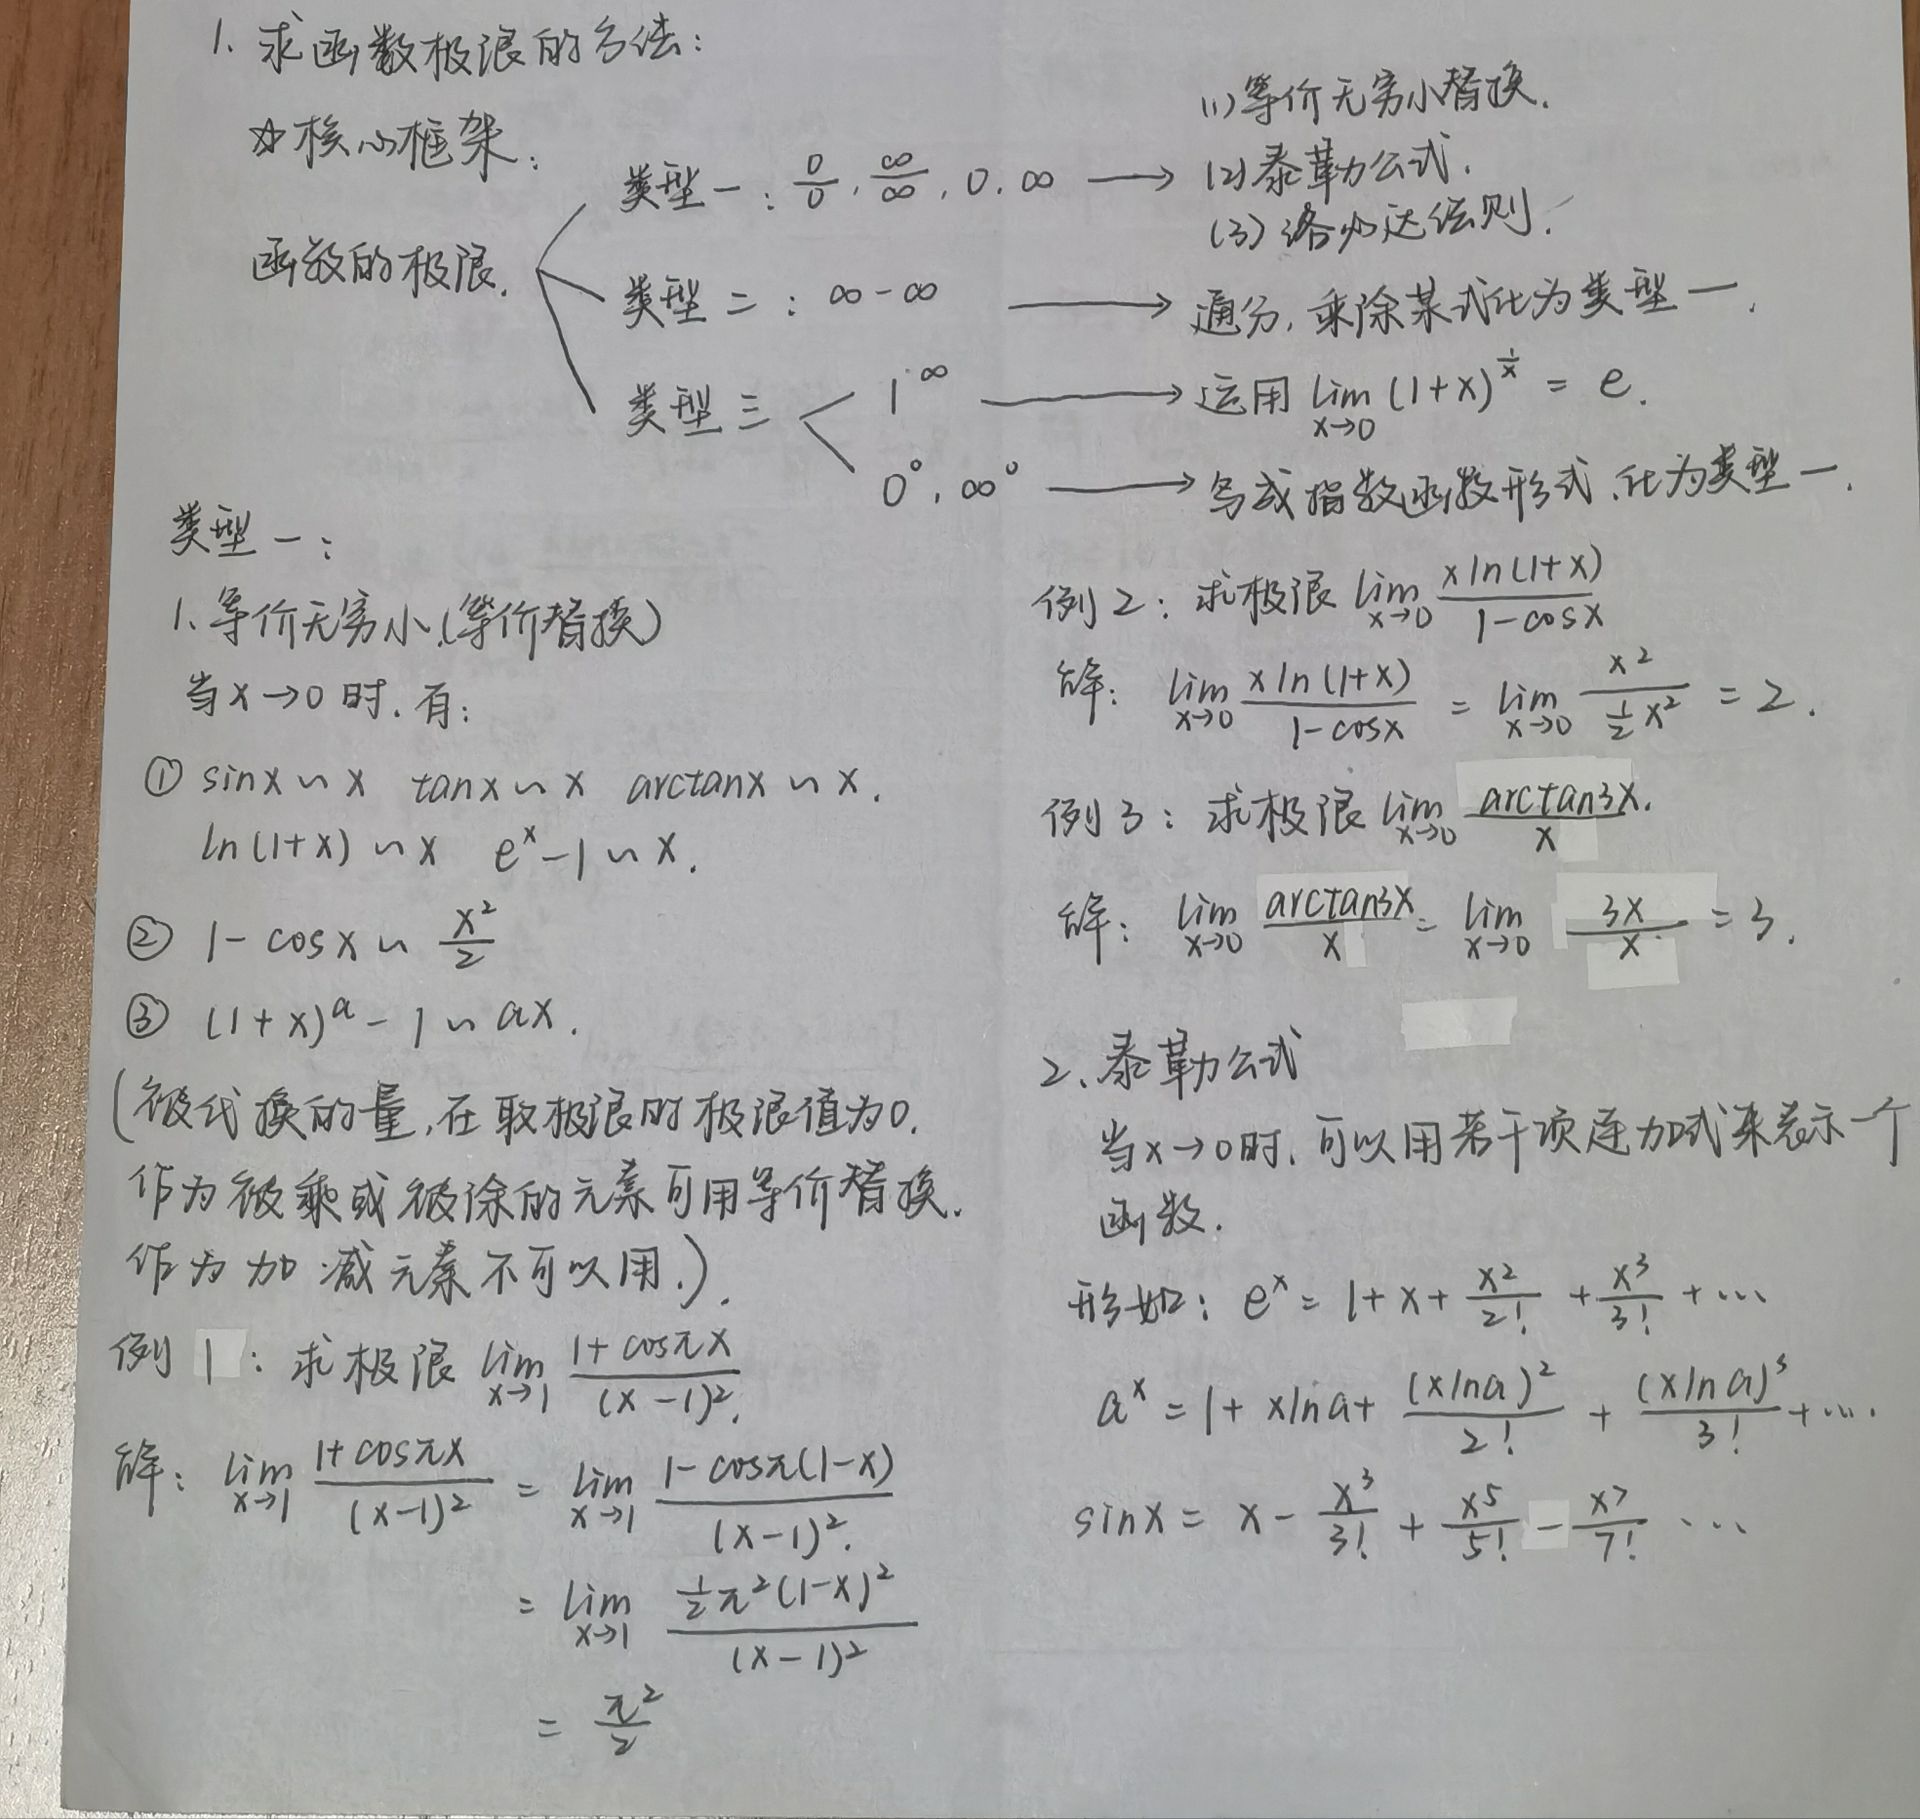 1. 求函数极限的方法:
☆核心框架:
函数的极限.
类型一: 0/0, ∞/∞, 0.∞ → (1)等价无穷小替换.
(2)泰勒公式.
(3)洛必达法则.
类型二: ∞-∞ → 通分,乘除某式化为类型一.
类型三 1^∞ → 运用 lim x→0 (1+x)^(1/x) = e.
0°, ∞° → 写成指数函数形式,化为类型一.
类型一:
1. 等价无穷小(等价替换)
当x→0时.有:
① sinx ~ x tanx ~ x arctanx ~ x.
ln(1+x) ~ x e^x-1 ~ x.
② 1-cosx ~ x²/2
③ (1+x)^a-1 ~ ax.
(被代换的量,在取极限时极限值为0.
作为被乘或被除的元素可用等价替换.
作为加减元素不可以用.).
例1: 求极限 lim x→1 (1+cosπx)/(x-1)².
解: lim x→1 (1+cosπx)/(x-1)² = lim x→1 (1-cosπ(1-x))/(x-1)².
= lim x→1 (½π²(1-x)²)/(x-1)²
= π²/2
例2: 求极限 lim x→0 (xln(1+x))/(1-cosx)
解: lim x→0 (xln(1+x))/(1-cosx) = lim x→0 x²/(½x²) = 2.
例3: 求极限 lim x→0 (arctan3x.)/x
解: lim x→0 (arctan3x)/x = lim x→0 3x/x = 3.
2. 泰勒公式
当x→0时,可以用若干项连加式来表示一个
函数.
形如: e^x = 1+x+x²/2!+x³/3!+…
a^x = 1+xlna+(xlna)²/2!+(xlna)³/3!+….
sinx = x-x³/3!+x⁵/5!-x⁷/7! …